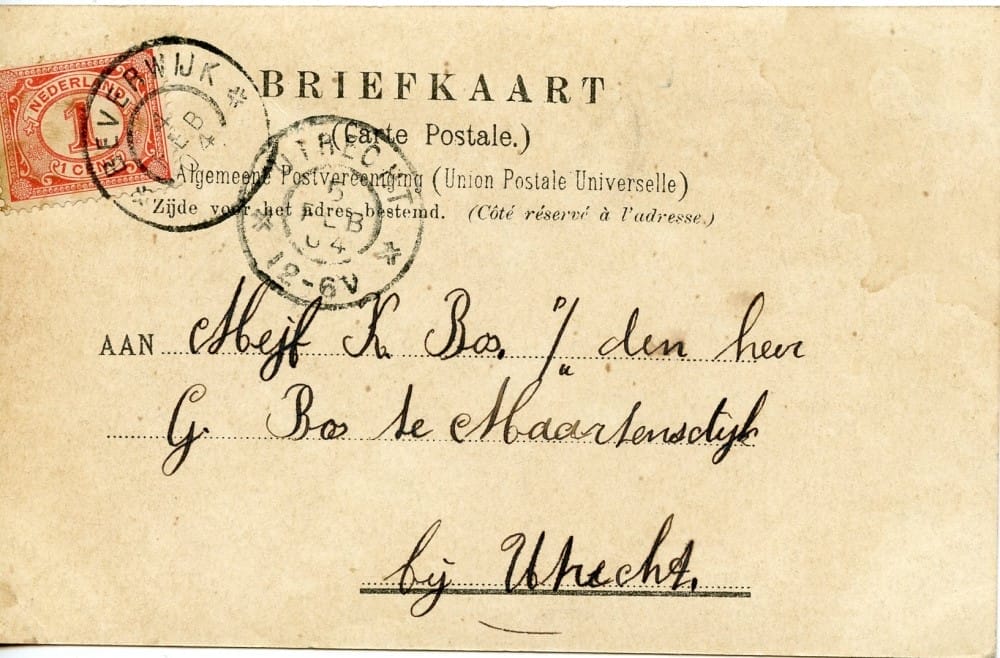 NEDERLAND
1
1 CENT
BEVERWIJK
4
FEB
04
BRIEFKAART
(Carte Postale.)
Algemeene Postvereeniging (Union Postale Universelle)
Zijde voor het adres bestemd. (Côté réservé à l'adresse.)
UTRECHT
5
FEB
04
12-6V
AAN Mejf K. Bos. %u den heer
G. Bos te Maartensdijk
bij Utrecht.